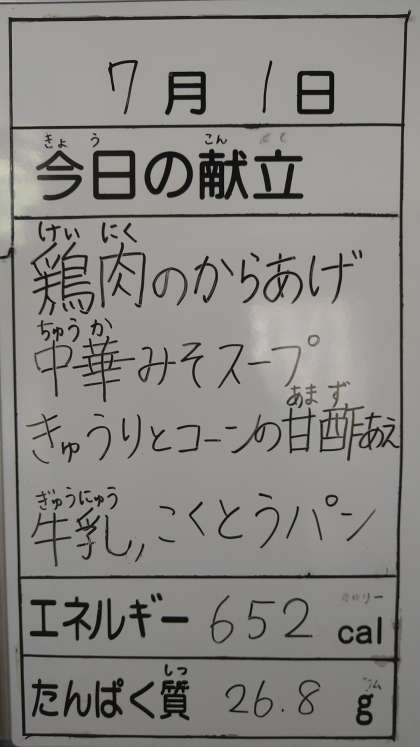 7月1日
きょう こん
今日の献立
けい にく
鶏肉のからあげ
ちゅう か
中華みそスープ
あま ず
きゅうりとコーンの甘酢あえ
ぎゅうにゅう
牛乳, こくとうパン
エネルギー 652 cal
しつ
たんぱく質 26.8 g